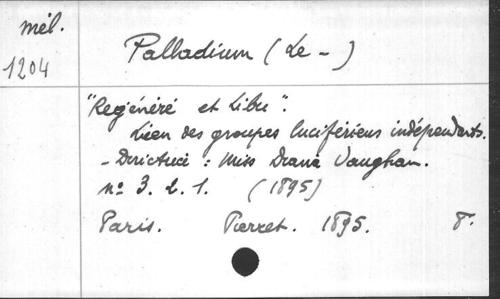 mél.
1204
Palladium (Le -)
"Regénéré et Libre".
Lien des groupes lucifériens indépendants.
- Directrice : Miss Diana Vaughan.
nº 3. t. 1. (1895)
Paris. Pierret. 1895. 8º.